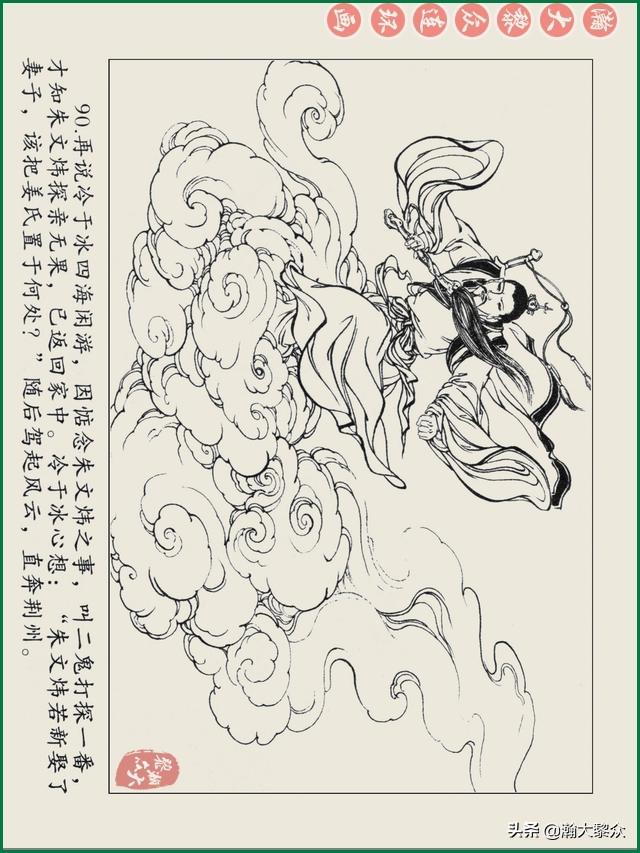 瀚大黎众连环画
90.再说冷于冰四海闲游，因惦念朱文炜之事，叫二鬼打探一番，
才知朱文炜探亲无果，已返回家中。冷于冰心想：“朱文炜若新娶了
妻子，该把姜氏置于何处？”随后驾起风云，直奔荆州。
瀚大黎众
头条 @瀚大黎众